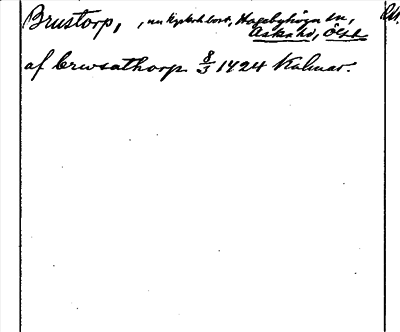 Brustorp, , nu kyrkobtorp, Hagebyhöga sn,
Aska hd, Ögtl
af brwsathorp 8/3 1424 Kalmar.